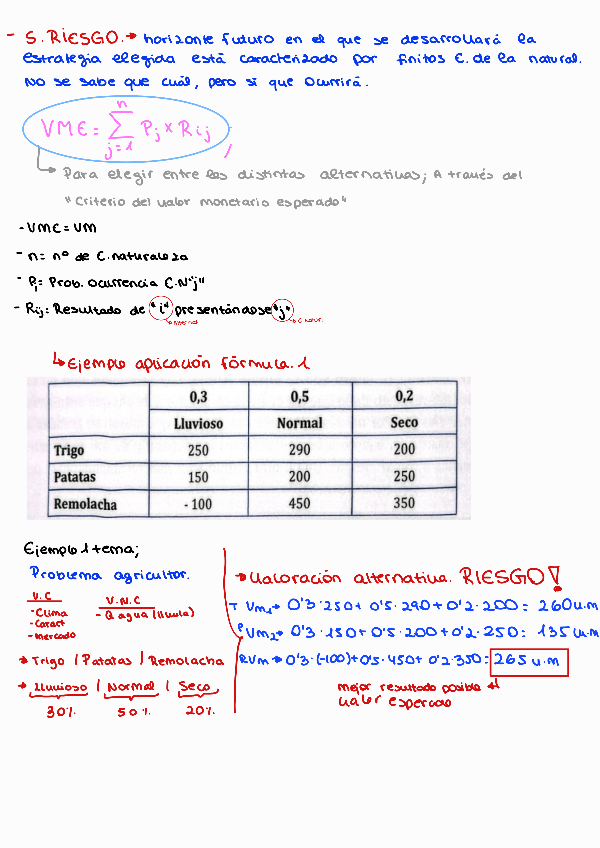 - S. RIESGO.→ horizonte futuro en el que se desarrollará la
estrategia elegida está caracterizado por finitos E. de la natural.
No se sabe que cuál, pero si que ocurrirá.
VME = n Σ j=1 Pj x Rij
Para elegir entre las distintas alternativas; A través del
"Criterio del valor monetario esperado"
- VME = VM
- n = nº de E. naturaleza
- Pj = Prob. ocurrencia E.N "j"
- Rij = Resultado de "i" presentándose "j"
Ejemplo aplicación fórmula. 1
0,3 0,5 0,2
Lluvioso Normal Seco
Trigo 250 290 200
Patatas 150 200 250
Remolacha - 100 450 350
Ejemplo 1 tema;
Problema agricultor.
V.C
- Clima
- Caract
- mercado
V.N.C
- Q agua (lluvia)
→ Trigo / Patatas / Remolacha
→ Lluvioso / Normal / Seco
30% 50% 20%
→ Valoración alternativa. RIESGO!
T Vm1 → 0'3 · 250 + 0'5 · 290 + 0'2 · 200 = 260 u.m
P Vm2 → 0'3 · 150 + 0'5 · 200 + 0'2 · 250 = 135 u.m
R Vm → 0'3 · (-100) + 0'5 · 450 + 0'2 · 350 = 265 u.m
mejor resultado posible
valor esperado